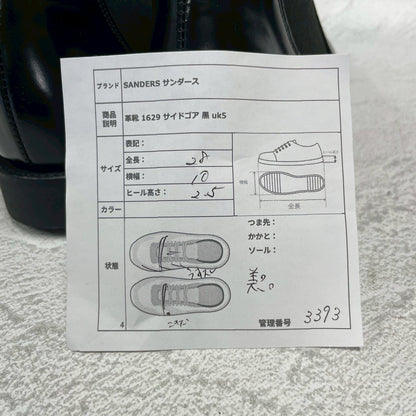 ブランド SANDERS サンダース
商品説明 革靴 1629 サイドゴア 黒 uk5
サイズ
表記:
全長: 28
横幅: 10
ヒール高さ: 2.5
ヒール高さ
横幅
全長
カラー
状態
つま先:
かかと:
ソール:
美。
4
管理番号 3393